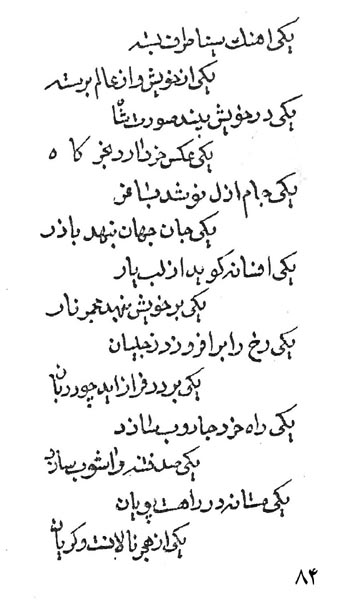 یکی آهنگ سینا طرف بسته
یکی از خویش و از عالم برسته
یکی در خویش بیند صورت
یکی عکس خرد دارد
یکی جام ازل نوشد
یکی جان جهان بنهد
یکی افسانه گوید از لب یار
یکی بر خویش بنهد نار
یکی رخ را برافروزد ز جلیان
یکی بر در فراز آید چو دربان
یکی راه خرد جاروب سازد
یکی صد فتنه و آشوب سازد
یکی مستانه در راهست پویان
یکی از هجر نالانست و گریان
۸۴